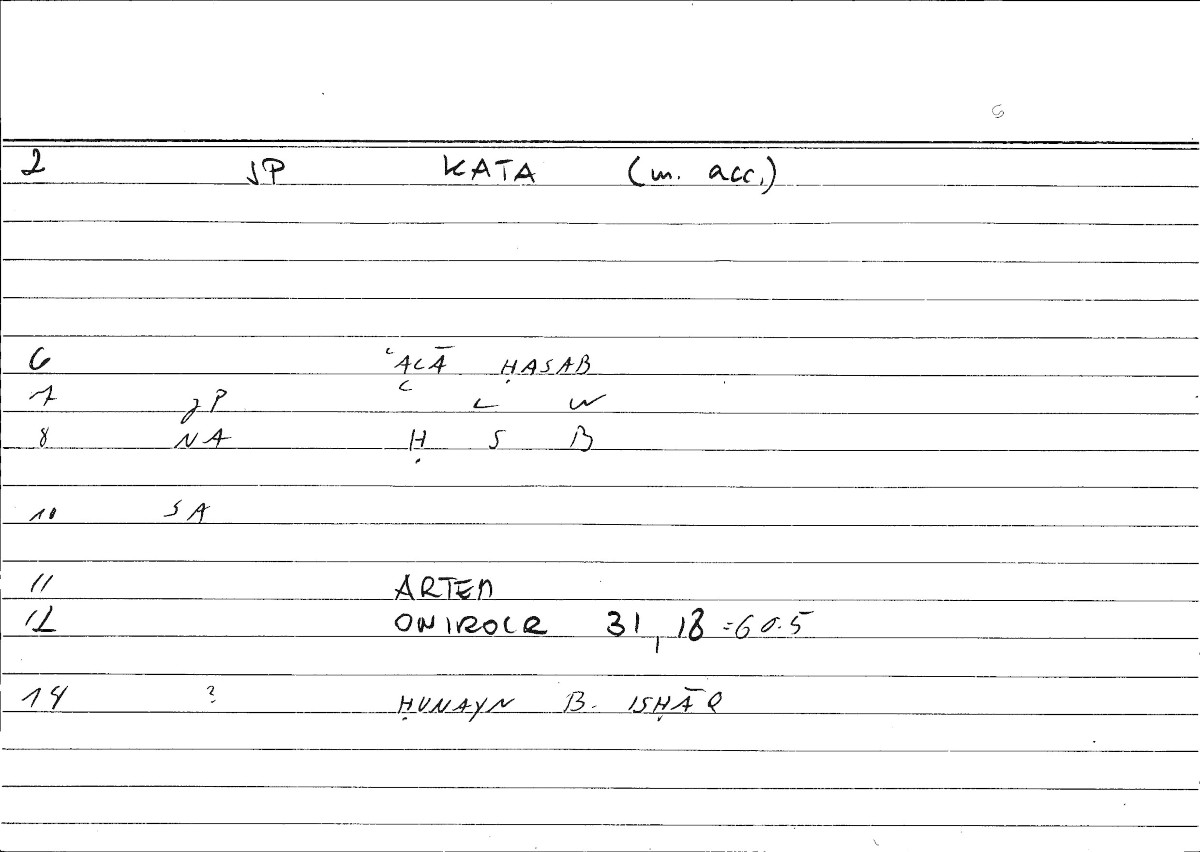 G
2 JP KATA (m. acc.)
6 ʿALĀ ḤASAB
7 JP ʿ L W
8 NA Ḥ S B
10 SA
11 ARTEM
12 ONIROCR 31,18 =60.5
14 ? ḤUNAYN B. ISḤĀQ